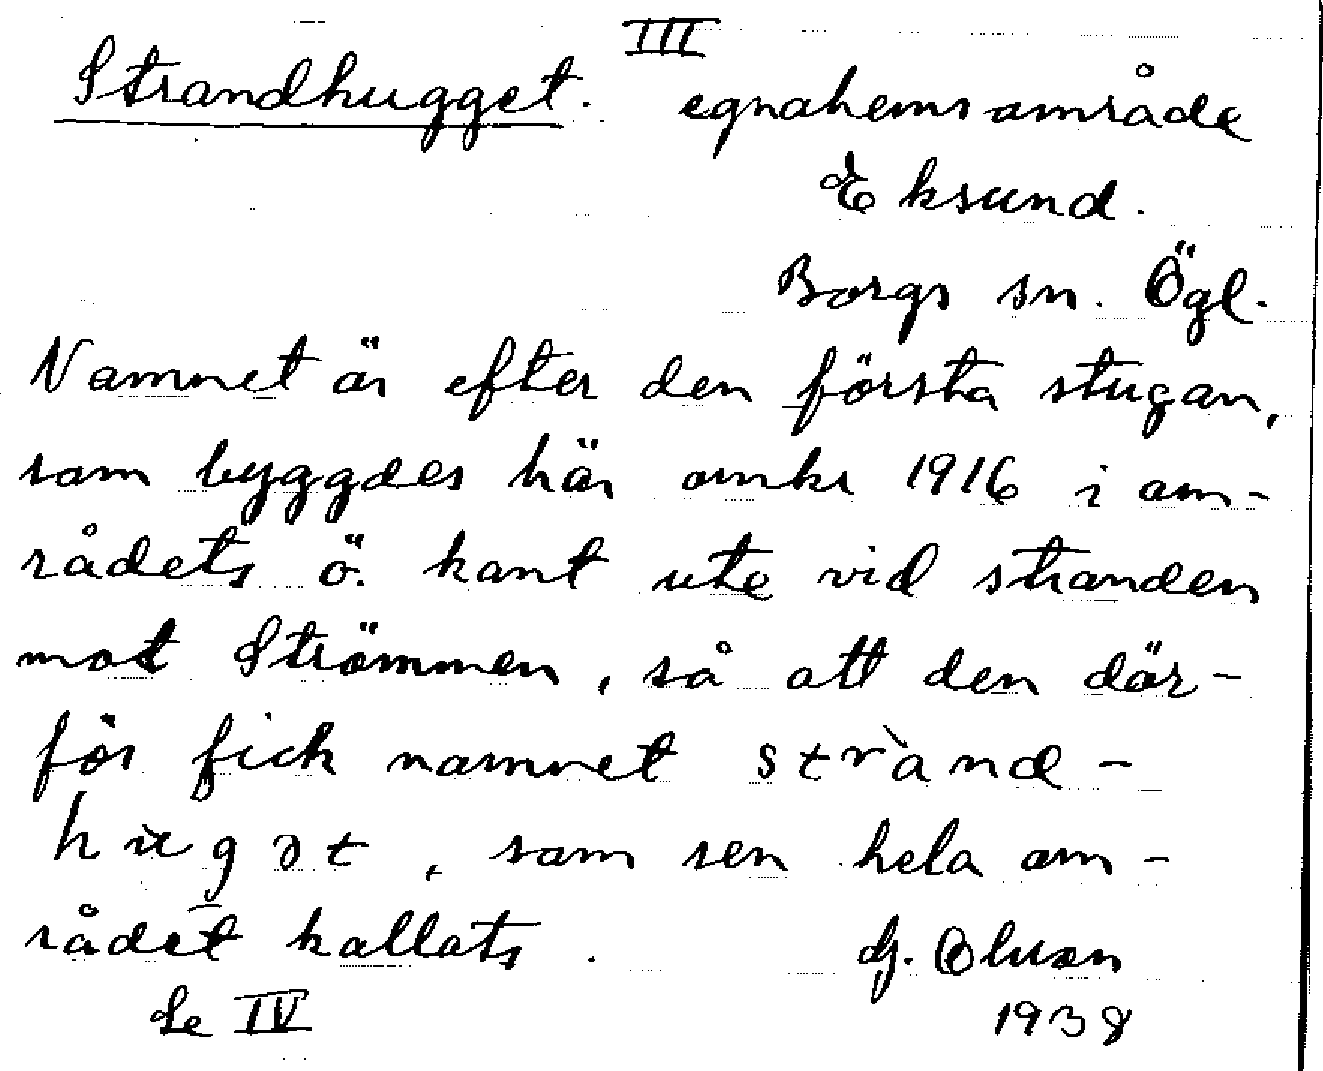 III
Strandhugget. egnahemsområde
Eksund.
Borgs sn. Ögl.
Namnet är efter den första stugan,
som byggdes här omkr 1916 i om-
rådets ö. kant ute vid stranden
mot Strömmen, så att den där-
för fick namnet strànd-
hùgət, som sen hela om-
rådet kallats.
G.
Se IV 1938